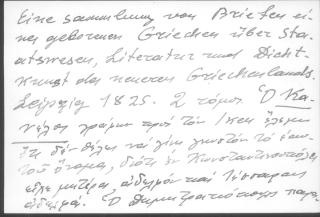 Eine Sammlung von Briefen ei-
nes geborenen Griechen über Sta-
atswesen, Literatur und Dicht-
kunst des neueren Griechenlands.
Leipzig 1825. 2 τόμοι Ὁ Κα-
νέλος γράφων πρὸς τὸν Iken ἔλεγεν
ὅτι δὲν θέλει νὰ γίνῃ γνωστὸν τὸ ἑαυ-
τοῦ ὄνομα, διότι ἐν Κωνσταντινουπόλει
εἶχε μητέρα, ἀδελφὸν καὶ τέσσαρας
ἀδελφάς. Ὁ